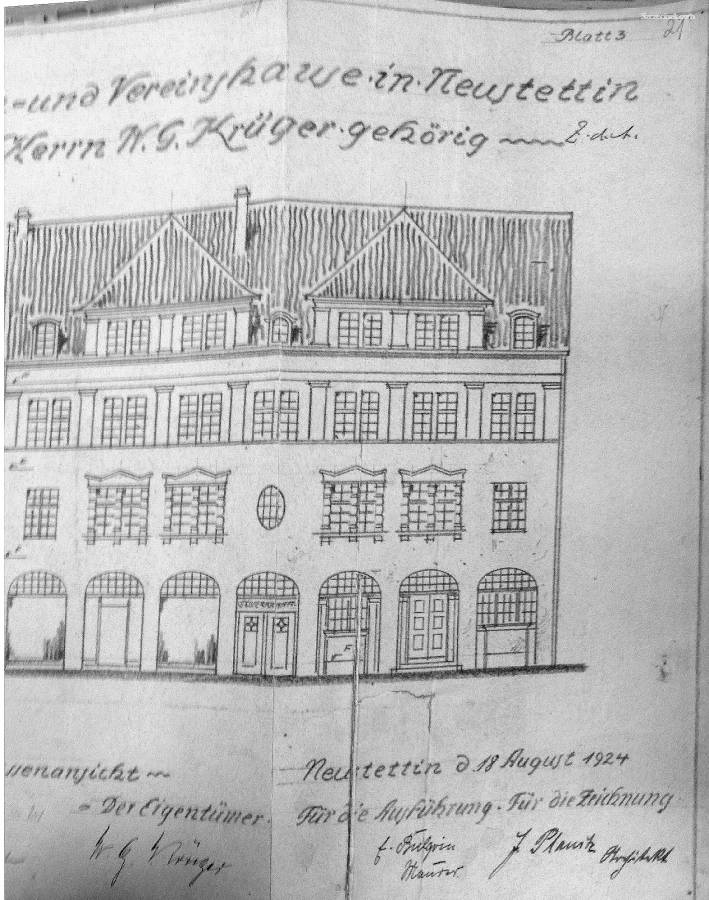 Blatt 3 21
- und Vereinshause in Neustettin
Herrn W. G. Krüger gehörig
Neustettin d 18 August 1924
ssenansicht
= Der Eigentümer.
Für die Ausführung. Für die Zeichnung
W. G. Krüger
Maurer
J. Planitz Architekt